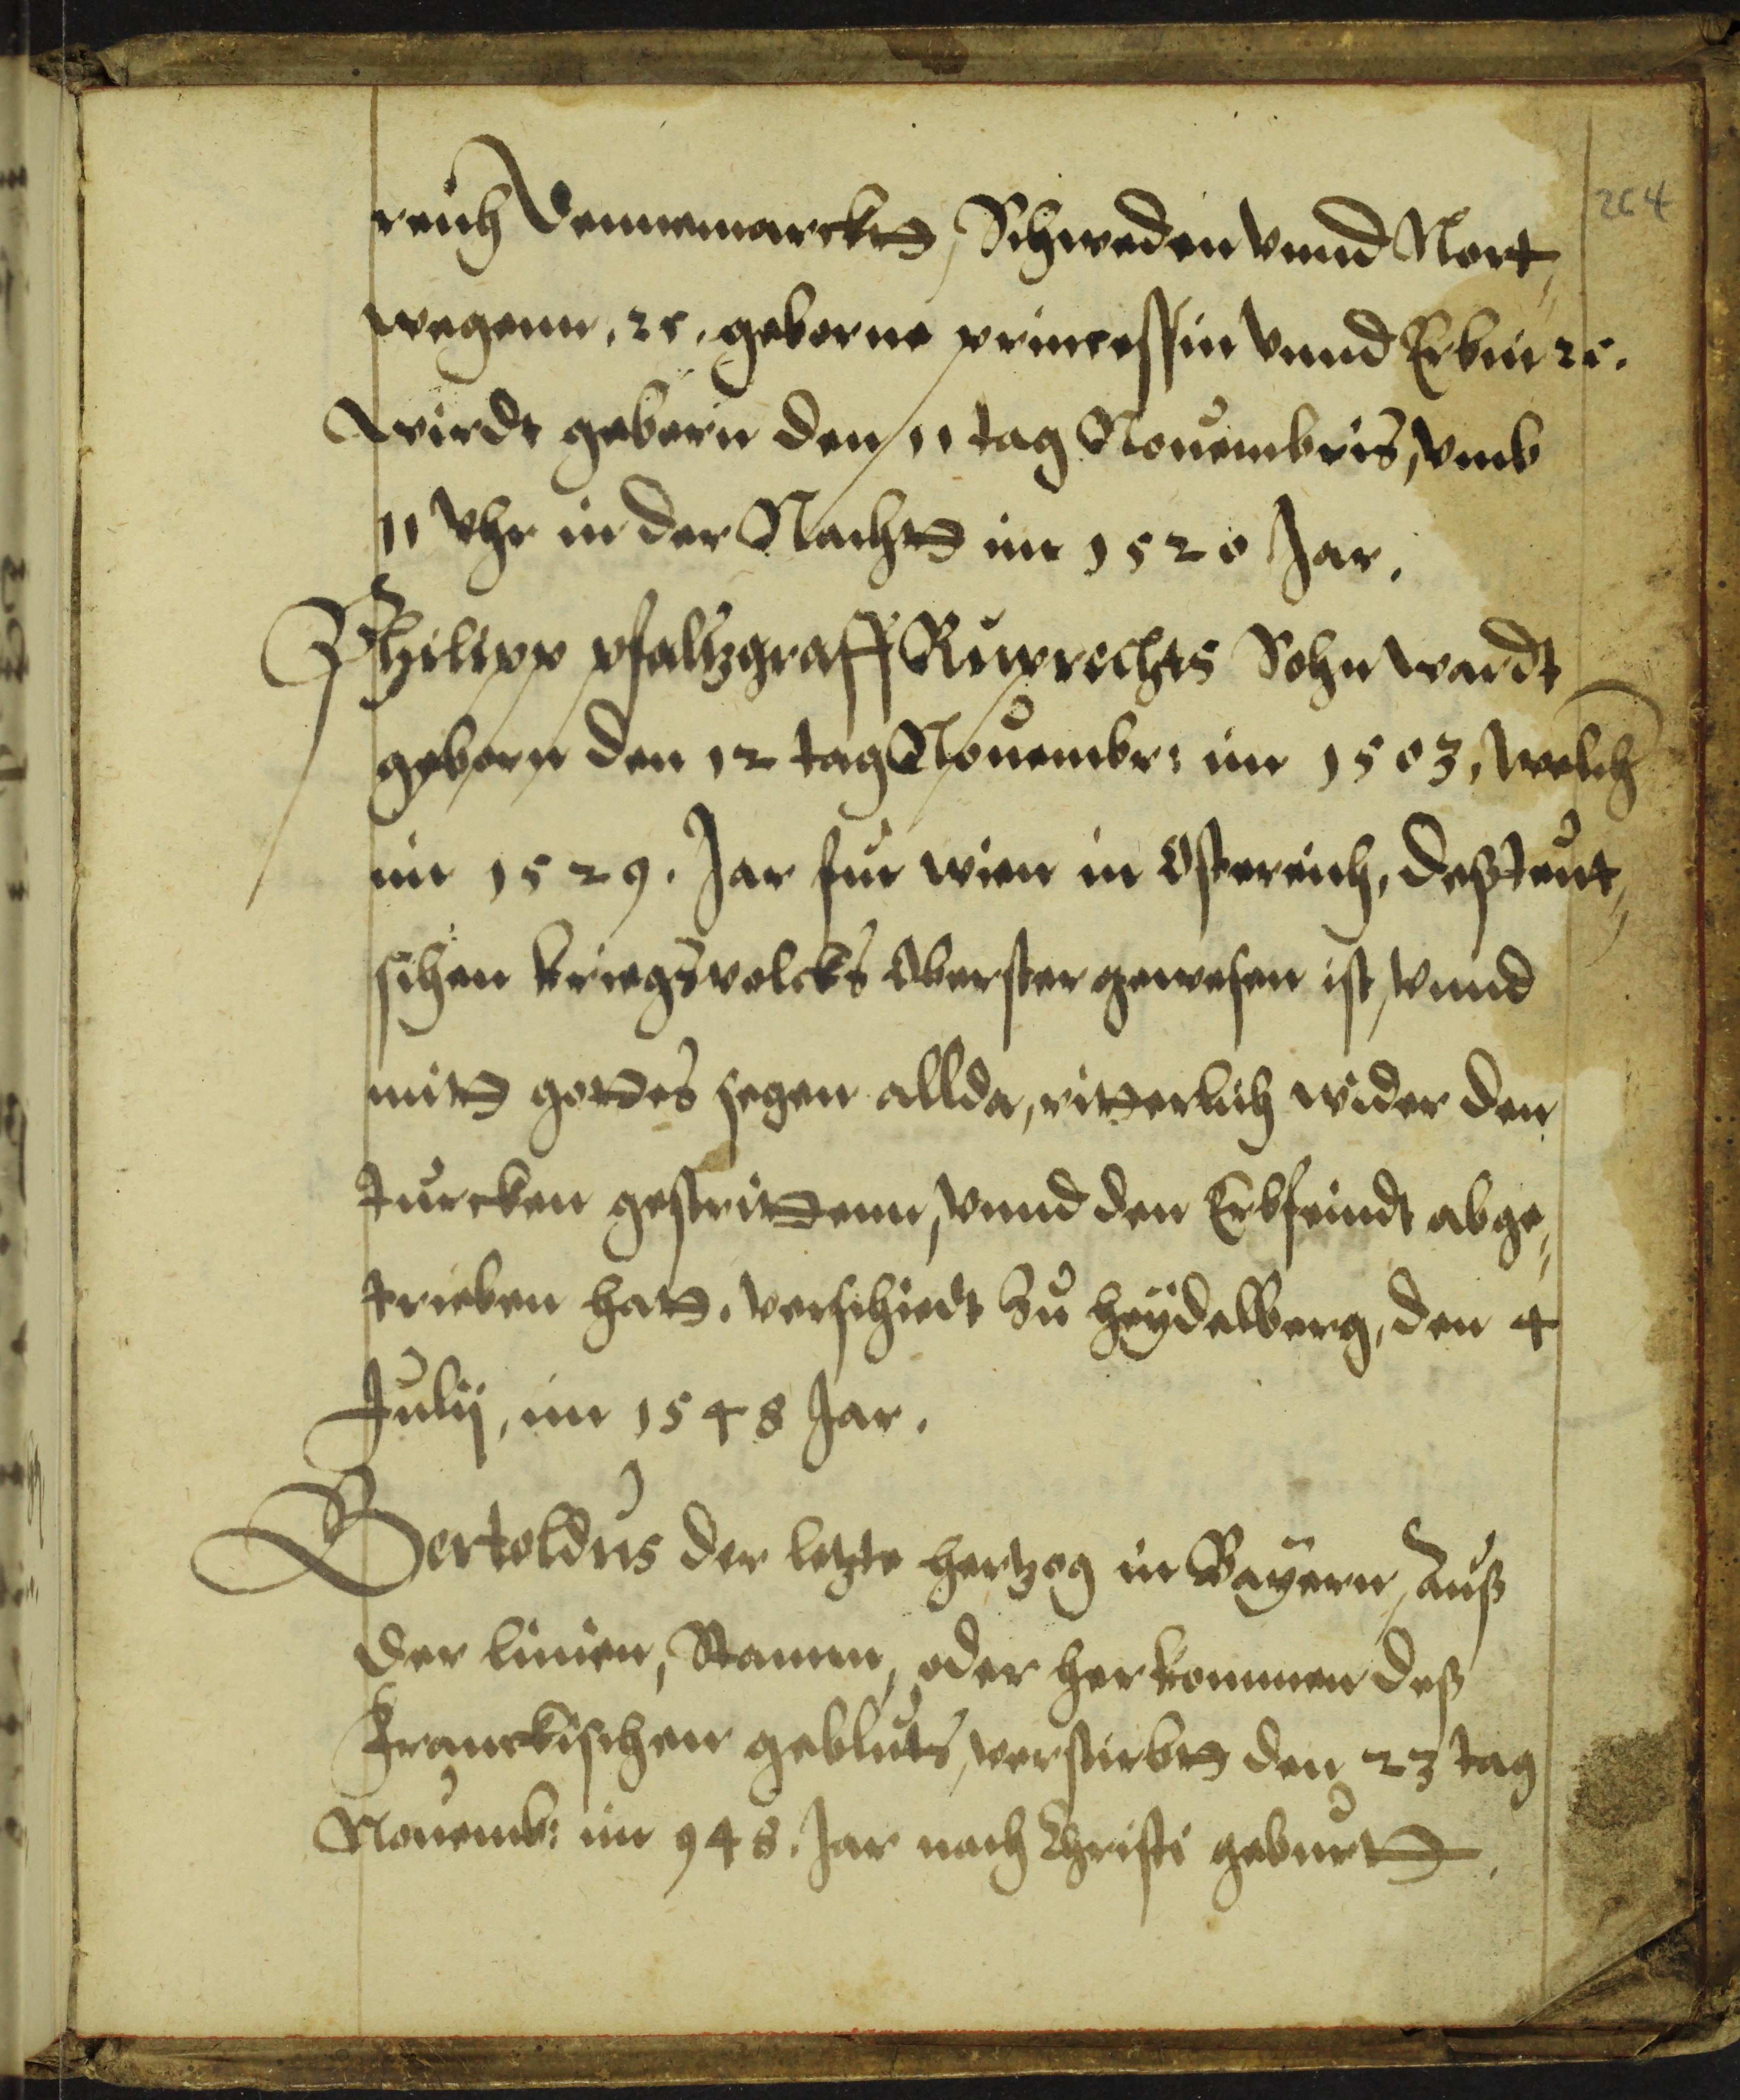 264
reich Dennemarckt, Schweden vnnd Nort,,
wegenn, ꝛc. geborne princessin vnnd Erbin ꝛc.
wirdt geborn den 11 tag Nouembris, vmb
11 Vhr in der Nacht im 1520 Jar.
Philipp pfaltzgraff Ruprechts Sohn wardt
geborn den 12 tag Nouembr: im 1503, welch
im 1529. Jar für wien in Ostereich, deß teut,,
schen kriegsvolcks Oberster gewesen ist, vnnd
mitt gottes segen allda, ritterlich wider den
türcken gestrittenn, vnnd den Erbfeindt abge,,
trieben hatt. verschiedt zu heÿdelberg, den 4
Julij, im 1548 Jar.
Bertoldus der letzte hertzog in Baÿern, Auß
der linien, Stamm, oder herkommen deß
Franckischen gebluts, verstirbtt den 23 tag
Nouemb: im 948. Jar nach Christi geburtt.